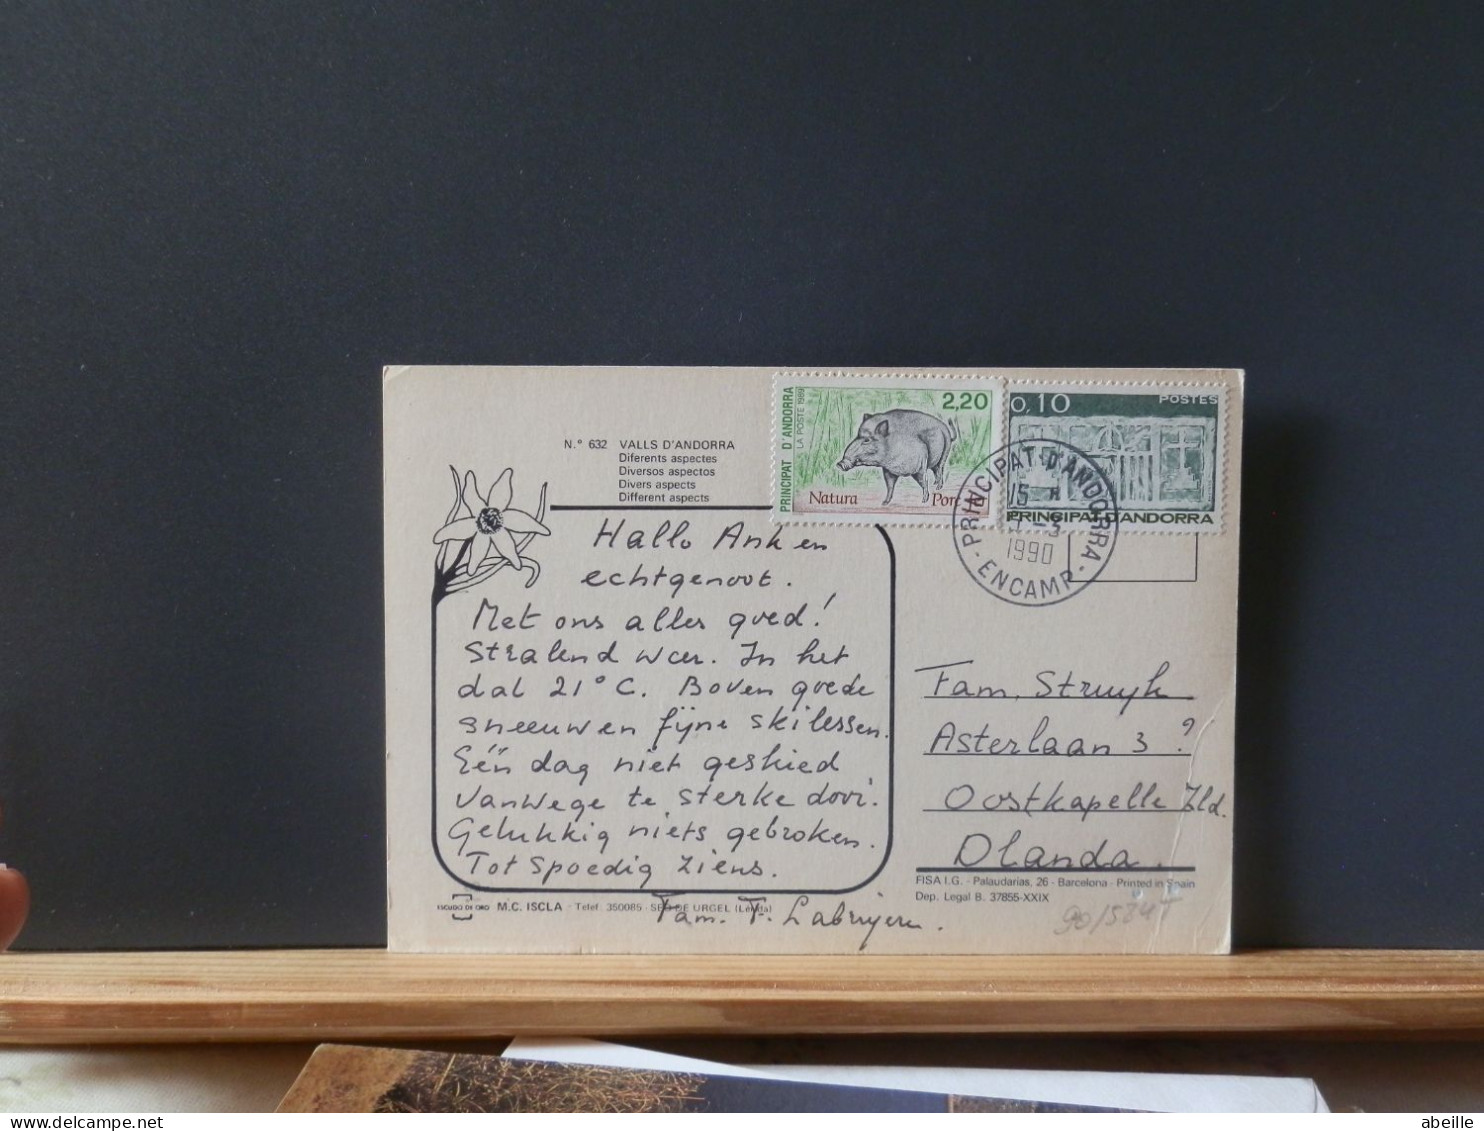 N.º 632 VALLS D'ANDORRA
Diferents aspectes
Diversos aspectos
Divers aspects
Different aspects
PRINCIPAT D'ANDORRA
LA POSTE 1989
2,20
Natura
Porc
0,10 POSTES
PRINCIPAT D'ANDORRA
PRINCIPAT D'ANDORRA
15 H
-3
1990
- ENCAMP -
Hallo Ank en
echtgenoot.
Met ons alles goed!
Stralend weer. In het
dal 21° C. Boven goede
sneeuw en fijne skilessen.
Eén dag niet geskied
vanwege te sterke dooi.
Gelukkig niets gebroken.
Tot spoedig ziens.
Fam. F. Labruyere.
Fam. Struyk
Asterlaan 3 ?
Oostkapelle Zld.
Olanda.
FISA I.G. - Palaudarias, 26 - Barcelona - Printed in Spain
Dep. Legal B. 37855-XXIX
ESCUDO DE ORO M.C. ISCLA - Telef. 350085 - SEO DE URGEL (Lérida)
abeille